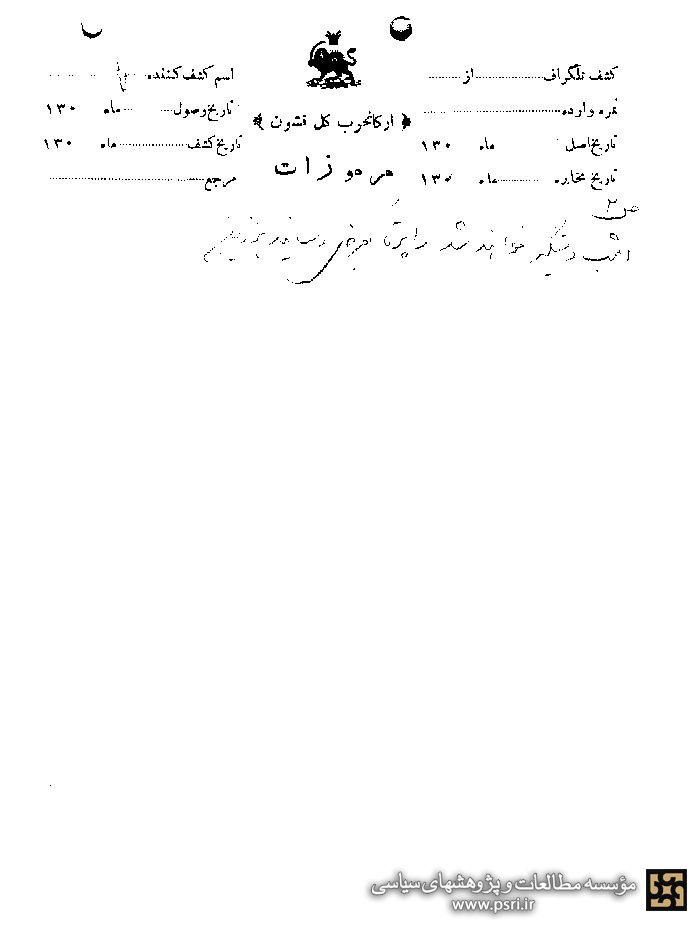 کشف تلگراف از
نمره وارده
تاریخ اصل ماه ۱۳۰
تاریخ مخابره ماه ۱۳۰
﴿ ارکانحرب کل قشون ﴾
مرموزات
اسم کشف کننده
تاریخ وصول ماه ۱۳۰
تاریخ کشف ماه ۱۳۰
مرجع
ص ۲
امشب دستگیر خواهند شد راپرتا
مؤسسه مطالعات و پژوهشهای سیاسی
www.psri.ir